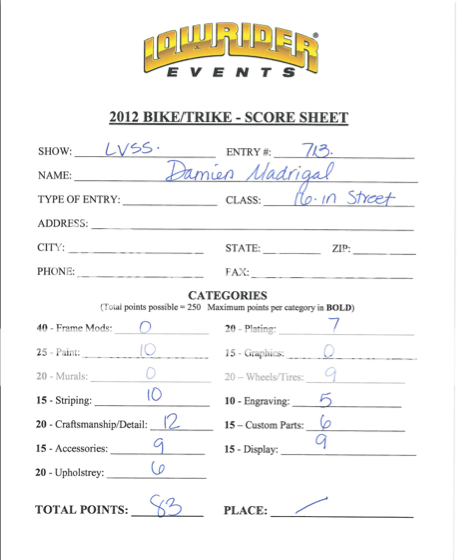 LOWRIDER
EVENTS
2012 BIKE/TRIKE - SCORE SHEET
SHOW: LVSS. ENTRY #: 713.
NAME: Damien Madrigal
TYPE OF ENTRY: CLASS: 16-in Street
ADDRESS:
CITY: STATE: ZIP:
PHONE: FAX:
CATEGORIES
(Total points possible = 250 Maximum points per category in BOLD)
40 - Frame Mods: 0 20 - Plating: 7
25 - Paint: 10 15 - Graphics: 0
20 - Murals: 0 20 – Wheels/Tires: 9
15 - Striping: 10 10 - Engraving: 5
20 - Craftsmanship/Detail: 12 15 – Custom Parts: 6
15 - Accessories: 9 15 - Display: 9
20 - Upholstrey: 6
TOTAL POINTS: 83 PLACE: